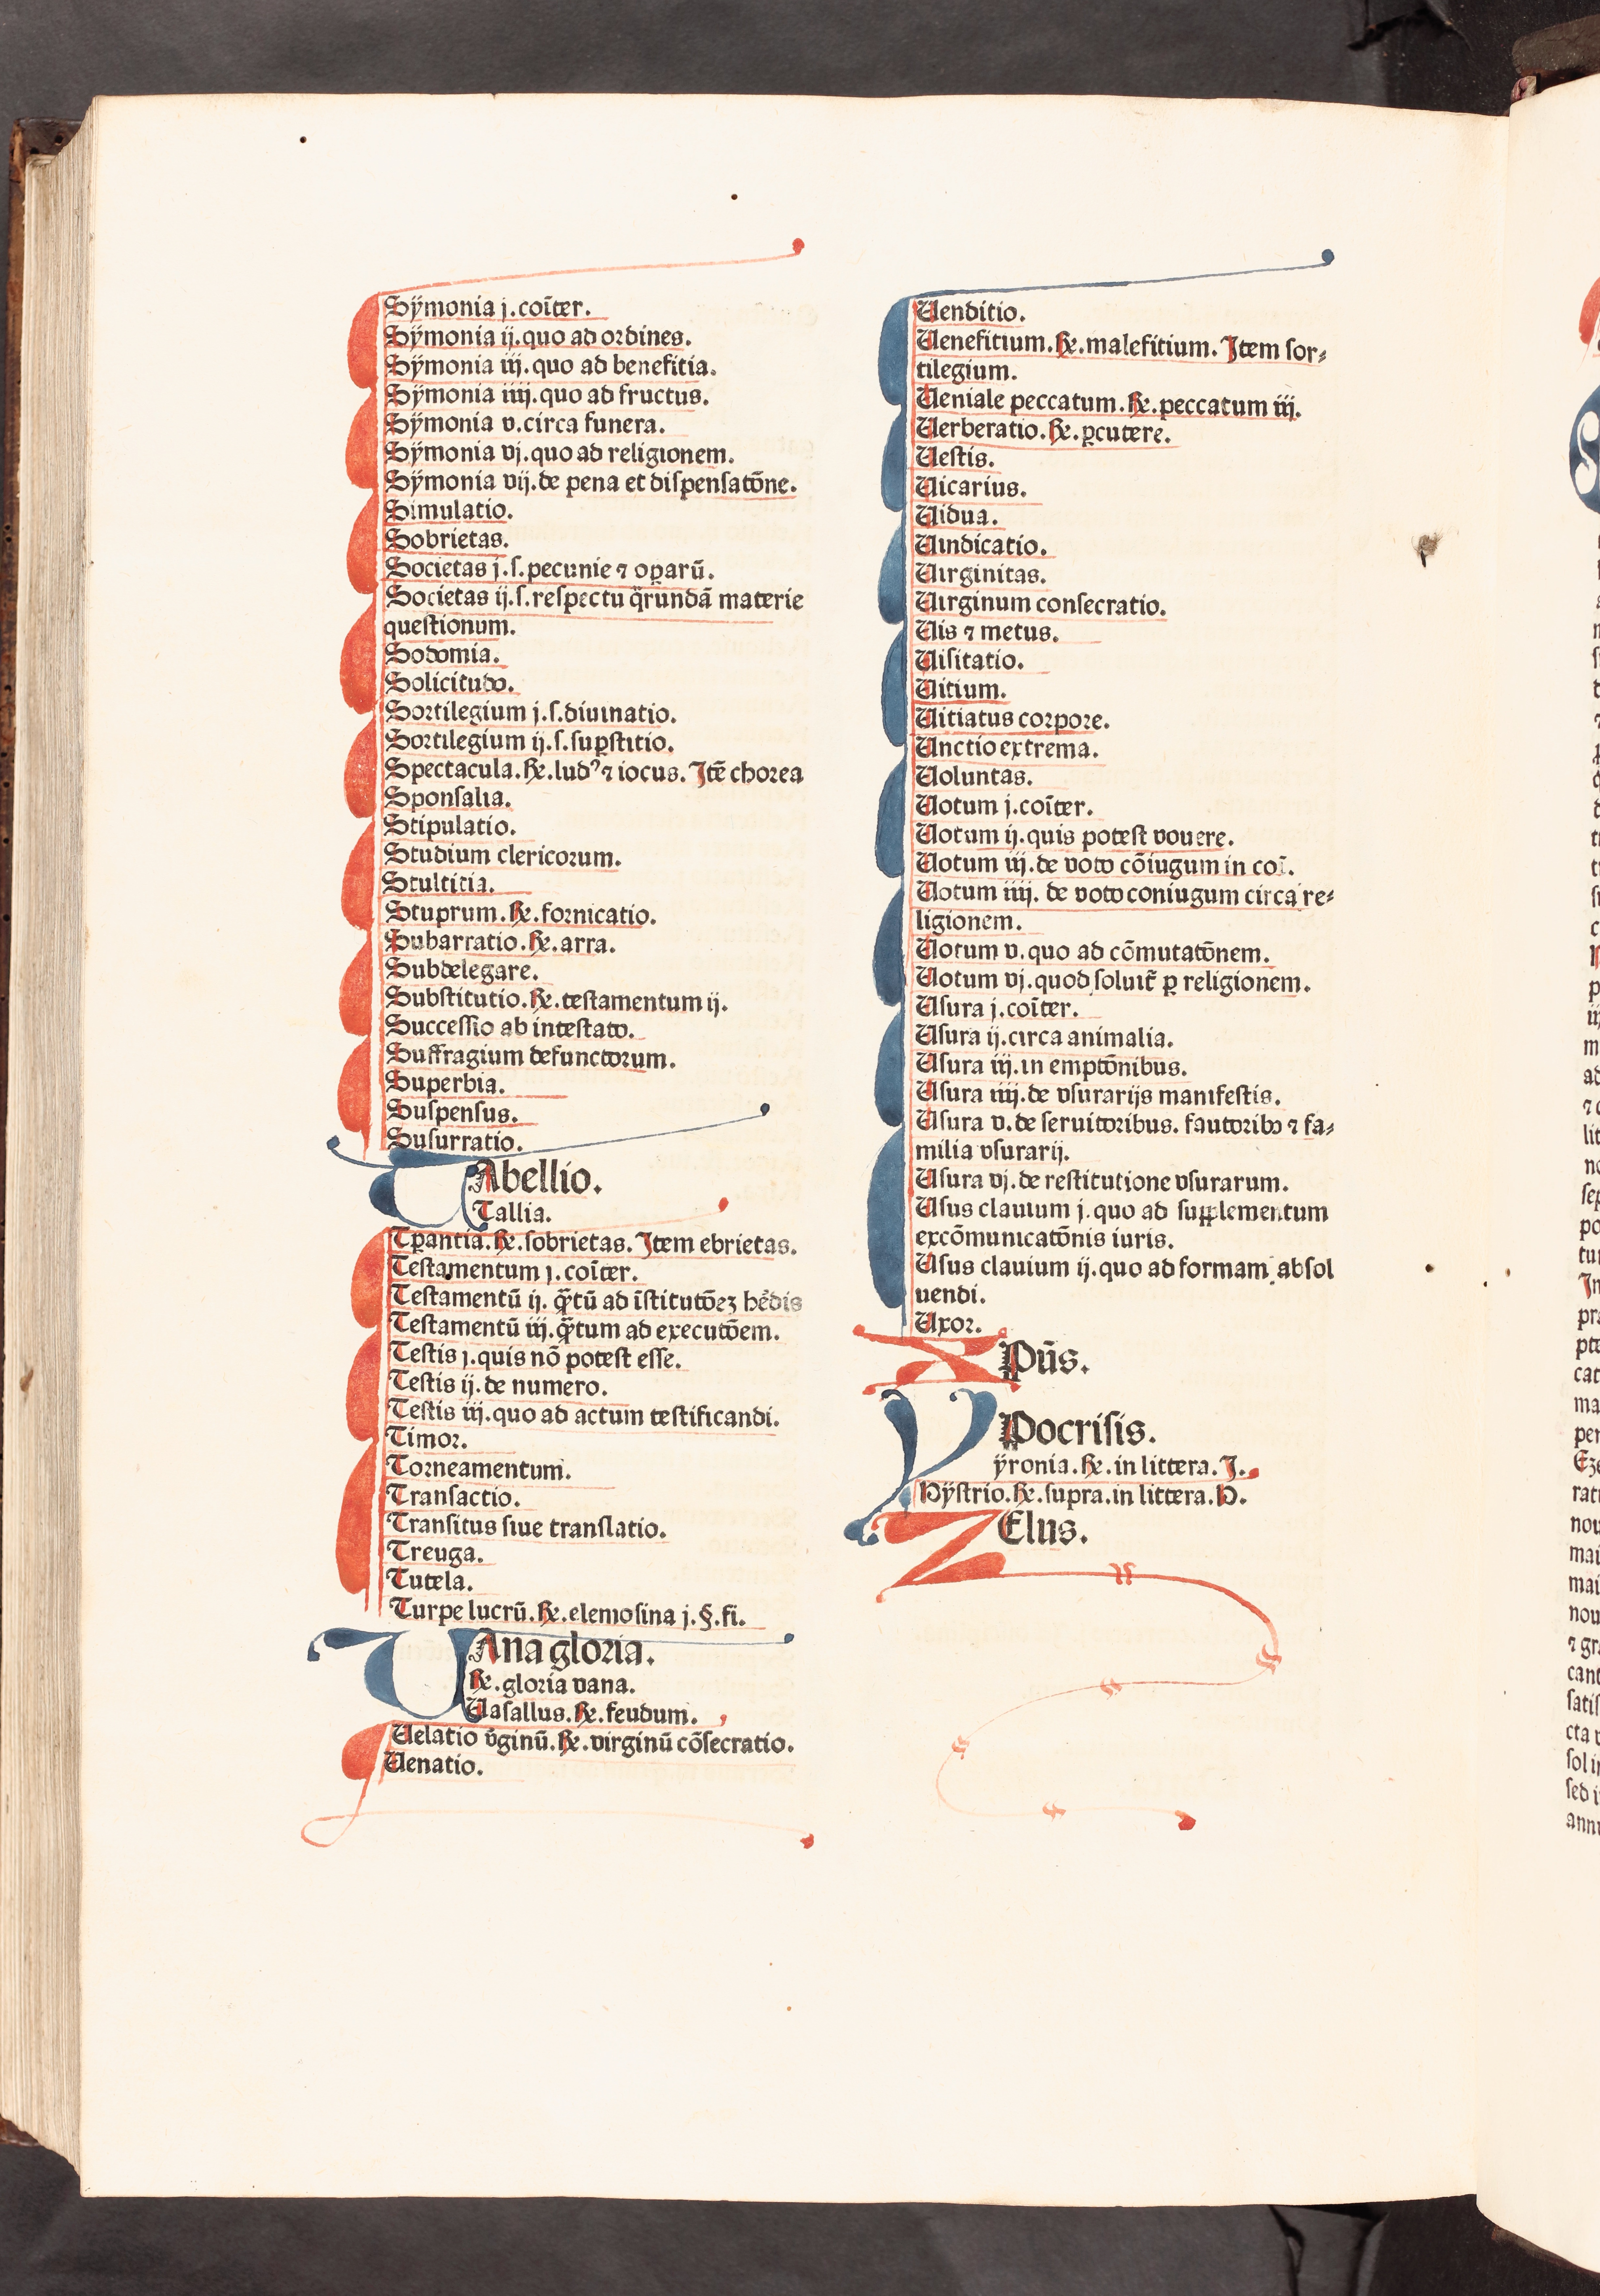 Sÿmonia j. coīter.
Sÿmonia ij. quo ad ordines.
Sÿmonia iij. quo ad benefitia.
Sÿmonia iiij. quo ad fructus.
Sÿmonia v. circa funera.
Sÿmonia vj. quo ad religionem.
Sÿmonia vij. de pena et dispensatōne.
Simulatio.
Sobrietas.
Societas j. ſ. pecunie ⁊ oꝑarū.
Societas ij. ſ. respectu q̄rundā materie
questionum.
Sodomia.
Solicitudo.
Sortilegium j. ſ. diuinatio.
Sortilegium ij. ſ. suꝑstitio.
Spectacula. Re.ludꝰ ⁊ iocus. Itē chorea
Sponsalia.
Stipulatio.
Studium clericorum.
Stultitia.
Stuprum. Re. fornicatio.
Subarratio. Re. arra.
Subdelegare.
Substitutio. Re. testamentum ij.
Successio ab intestato.
Suffragium defunctorum.
Superbia.
Suspensus.
Susurratio.
TAbellio.
Tallia.
Tꝑantia. Re. sobrietas. Item ebrietas.
Testamentum j. coīter.
Testamentū ij. q̄tū ad īstitutōeꝫ hēdis
Testamentū iij. q̄tum ad executōem.
Testis j. quis nō potest esse.
Testis ij. de numero.
Testis iij. quo ad actum testificandi.
Timor.
Torneamentum.
Transactio.
Transitus siue translatio.
Treuga.
Tutela.
Turpe lucrū. Re. elemosina j. §. fi.
UAna gloria.
Re. gloria vana.
Uasallus. Re. feudum.
Uelatio v̄ginū. Re. virginū cōsecratio.
Uenatio.
Uenditio.
Uenefitium. Re. malefitium. Item sor⸗
tilegium.
Ueniale peccatum. Re. peccatum iij.
Uerberatio. Re. ꝑcutere.
Uestis.
Uicarius.
Uidua.
Uindicatio.
Uirginitas.
Uirginum consecratio.
Uis ⁊ metus.
Uisitatio.
Uitium.
Uitiatus corpore.
Unctio extrema.
Uoluntas.
Uotum j. coīter.
Uotum ij. quis potest vouere.
Uotum iij. de voto cōiugum in coī.
Uotum iiij. de voto coniugum circa re⸗
ligionem.
Uotum v. quo ad cōmutatōnem.
Uotum vj. quod soluit̄ ꝑ religionem.
Usura j. coīter.
Usura ij. circa animalia.
Usura iij. in emptōnibus.
Usura iiij. de vsurarijs manifestis.
Usura v. de seruitoribus. fautoribꝰ ⁊ fa⸗
milia vsurarij.
Usura vj. de restitutione vsurarum.
Usus clauium j. quo ad supplementum
excōmunicatōnis iuris.
Usus clauium ij. quo ad formam absol
uendi.
Uxor.
XPūs.
YPocrisis.
ÿronia. Re. in littera. I.
Hÿstrio. Re. supra. in littera. H.
ZElus.